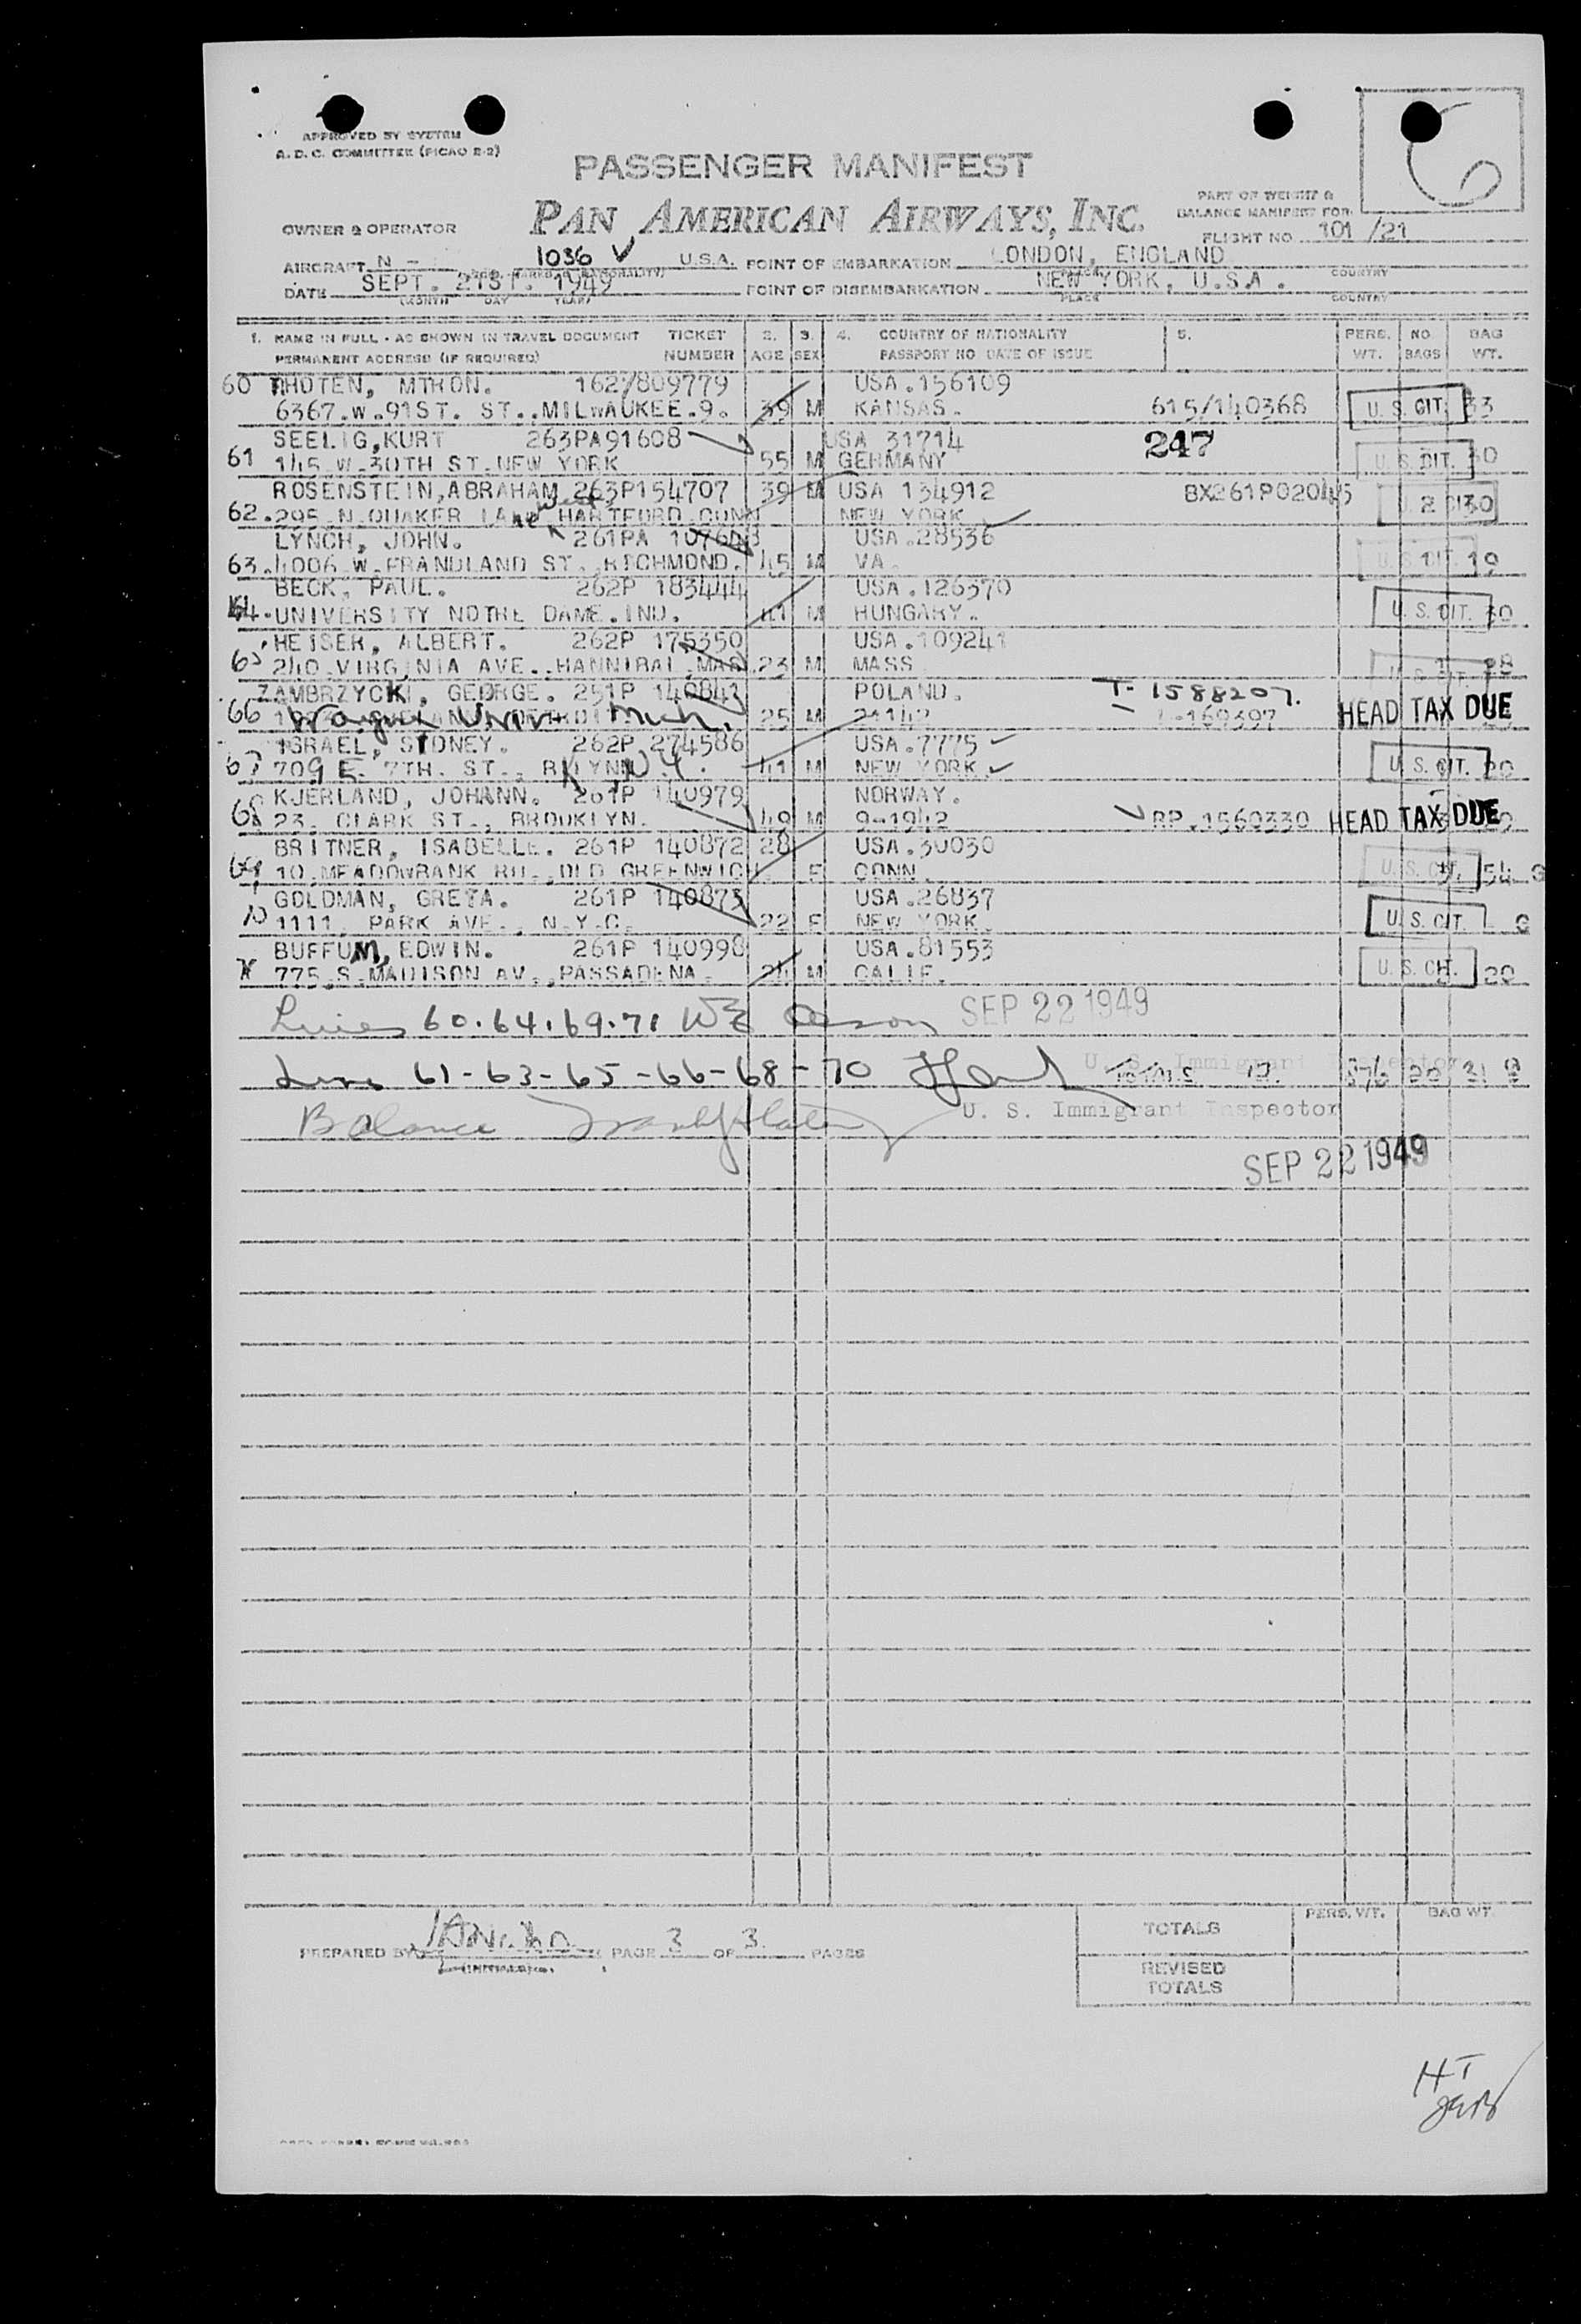 APPROVED BY SYSTEM
A. D. C. COMMITTEE (PICAO 2-2)
PASSENGER MANIFEST
PAN AMERICAN AIRWAYS, INC.
PART OF WEIGHT &
BALANCE MANIFEST FOR
FLIGHT NO 101 /21
OWNER & OPERATOR
AIRCRAFT N - 1036 U.S.A. POINT OF EMBARKATION LONDON, ENGLAND
DATE SEPT. 21ST. 1949 POINT OF DISEMBARKATION NEW YORK, U.S.A.
(MONTH DAY YEAR) PLACE COUNTRY
1. NAME IN FULL - AS SHOWN IN TRAVEL DOCUMENT TICKET 2. 3. 4. COUNTRY OF NATIONALITY 5. PERS. NO. BAG
PERMANENT ADDRESS (IF REQUIRED) NUMBER AGE SEX PASSPORT NO DATE OF ISSUE WT. BAGS WT.
60 RHOTEN, MTRON. 1627/809779 USA.156109
6367.W.91ST. ST..MILWAUKEE.9. 39 M KANSAS. 615/140368 U. S. CIT. 33
SEELIG,KURT 263PA91608 USA 31714 247
61 145 W.30TH ST.NEW YORK 55 M GERMANY U. S. CIT. 30
ROSENSTEIN,ABRAHAM 263P154707 39 M USA 134912 BX261P02045
62. 295 N.QUAKER LANE West HARTFORD CONN NEW YORK 2 30
LYNCH, JOHN. 261PA USA.28536
63. 4006 W. ST. RICHMOND. 45 M VA. U. S. CIT. 19
BECK, PAUL. 262P 183444 USA.126370
64. UNIVERSITY NOTRE DAME.IND. 41 M HUNGARY. U. S. CIT. 30
HEISER, ALBERT. 262P 175350 USA.109241
65 240 VIRGINIA AVE..HANNIBAL 23 M MASS U. S. CIT. 28
ZAMBRZYCKI, GEORGE. 251P 140841 POLAND. T-1588207.
66 Wayne Univ. Mich. 25 M 21142 169397 HEAD TAX DUE
ISRAEL, SIDNEY. 262P 274586 USA.7775
67 709 E. 7TH. ST., BKLYN N.Y. 41 M NEW YORK. U. S. CIT. 20
KJERLAND, JOHANN. 261P 140979 NORWAY.
68 23. CLARK ST., BROOKLYN. 49 M 9-1942 RP.1560330 HEAD TAX DUE
BRITNER, ISABELLE. 261P 140872 28 USA.30030
69 10.MEADOWBANK RD..OLD GREENWICH. F CONN. U. S. CIT. 54 G
GOLDMAN, GRETA. 261P 140873 USA.26837
70 1111. PARK AVE., N.Y.C. 22 F NEW YORK. U. S. CIT. G
BUFFUM, EDWIN. 261P 140998 USA.81553
775.S.MADISON AV..PASSADENA. 24 M CALIF. U. S. CIT. 20
Lines 60.64.69.71 SEP 22 1949
U. S. Immigrant Inspector
Lines 61-63-65-66-68-70 TOTALS 12.
Balance U. S. Immigrant Inspector
SEP 22 1949
PREPARED BY PAGE 3 OF 3 PAGES
(INITIALS)
TOTALS PERS. WT. BAG WT.
REVISED
TOTALS
HT